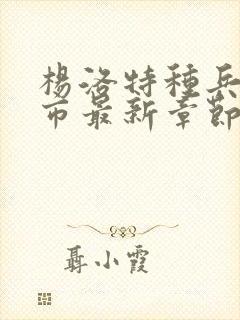 楊洛特種兵
市最新章節
聶小霞